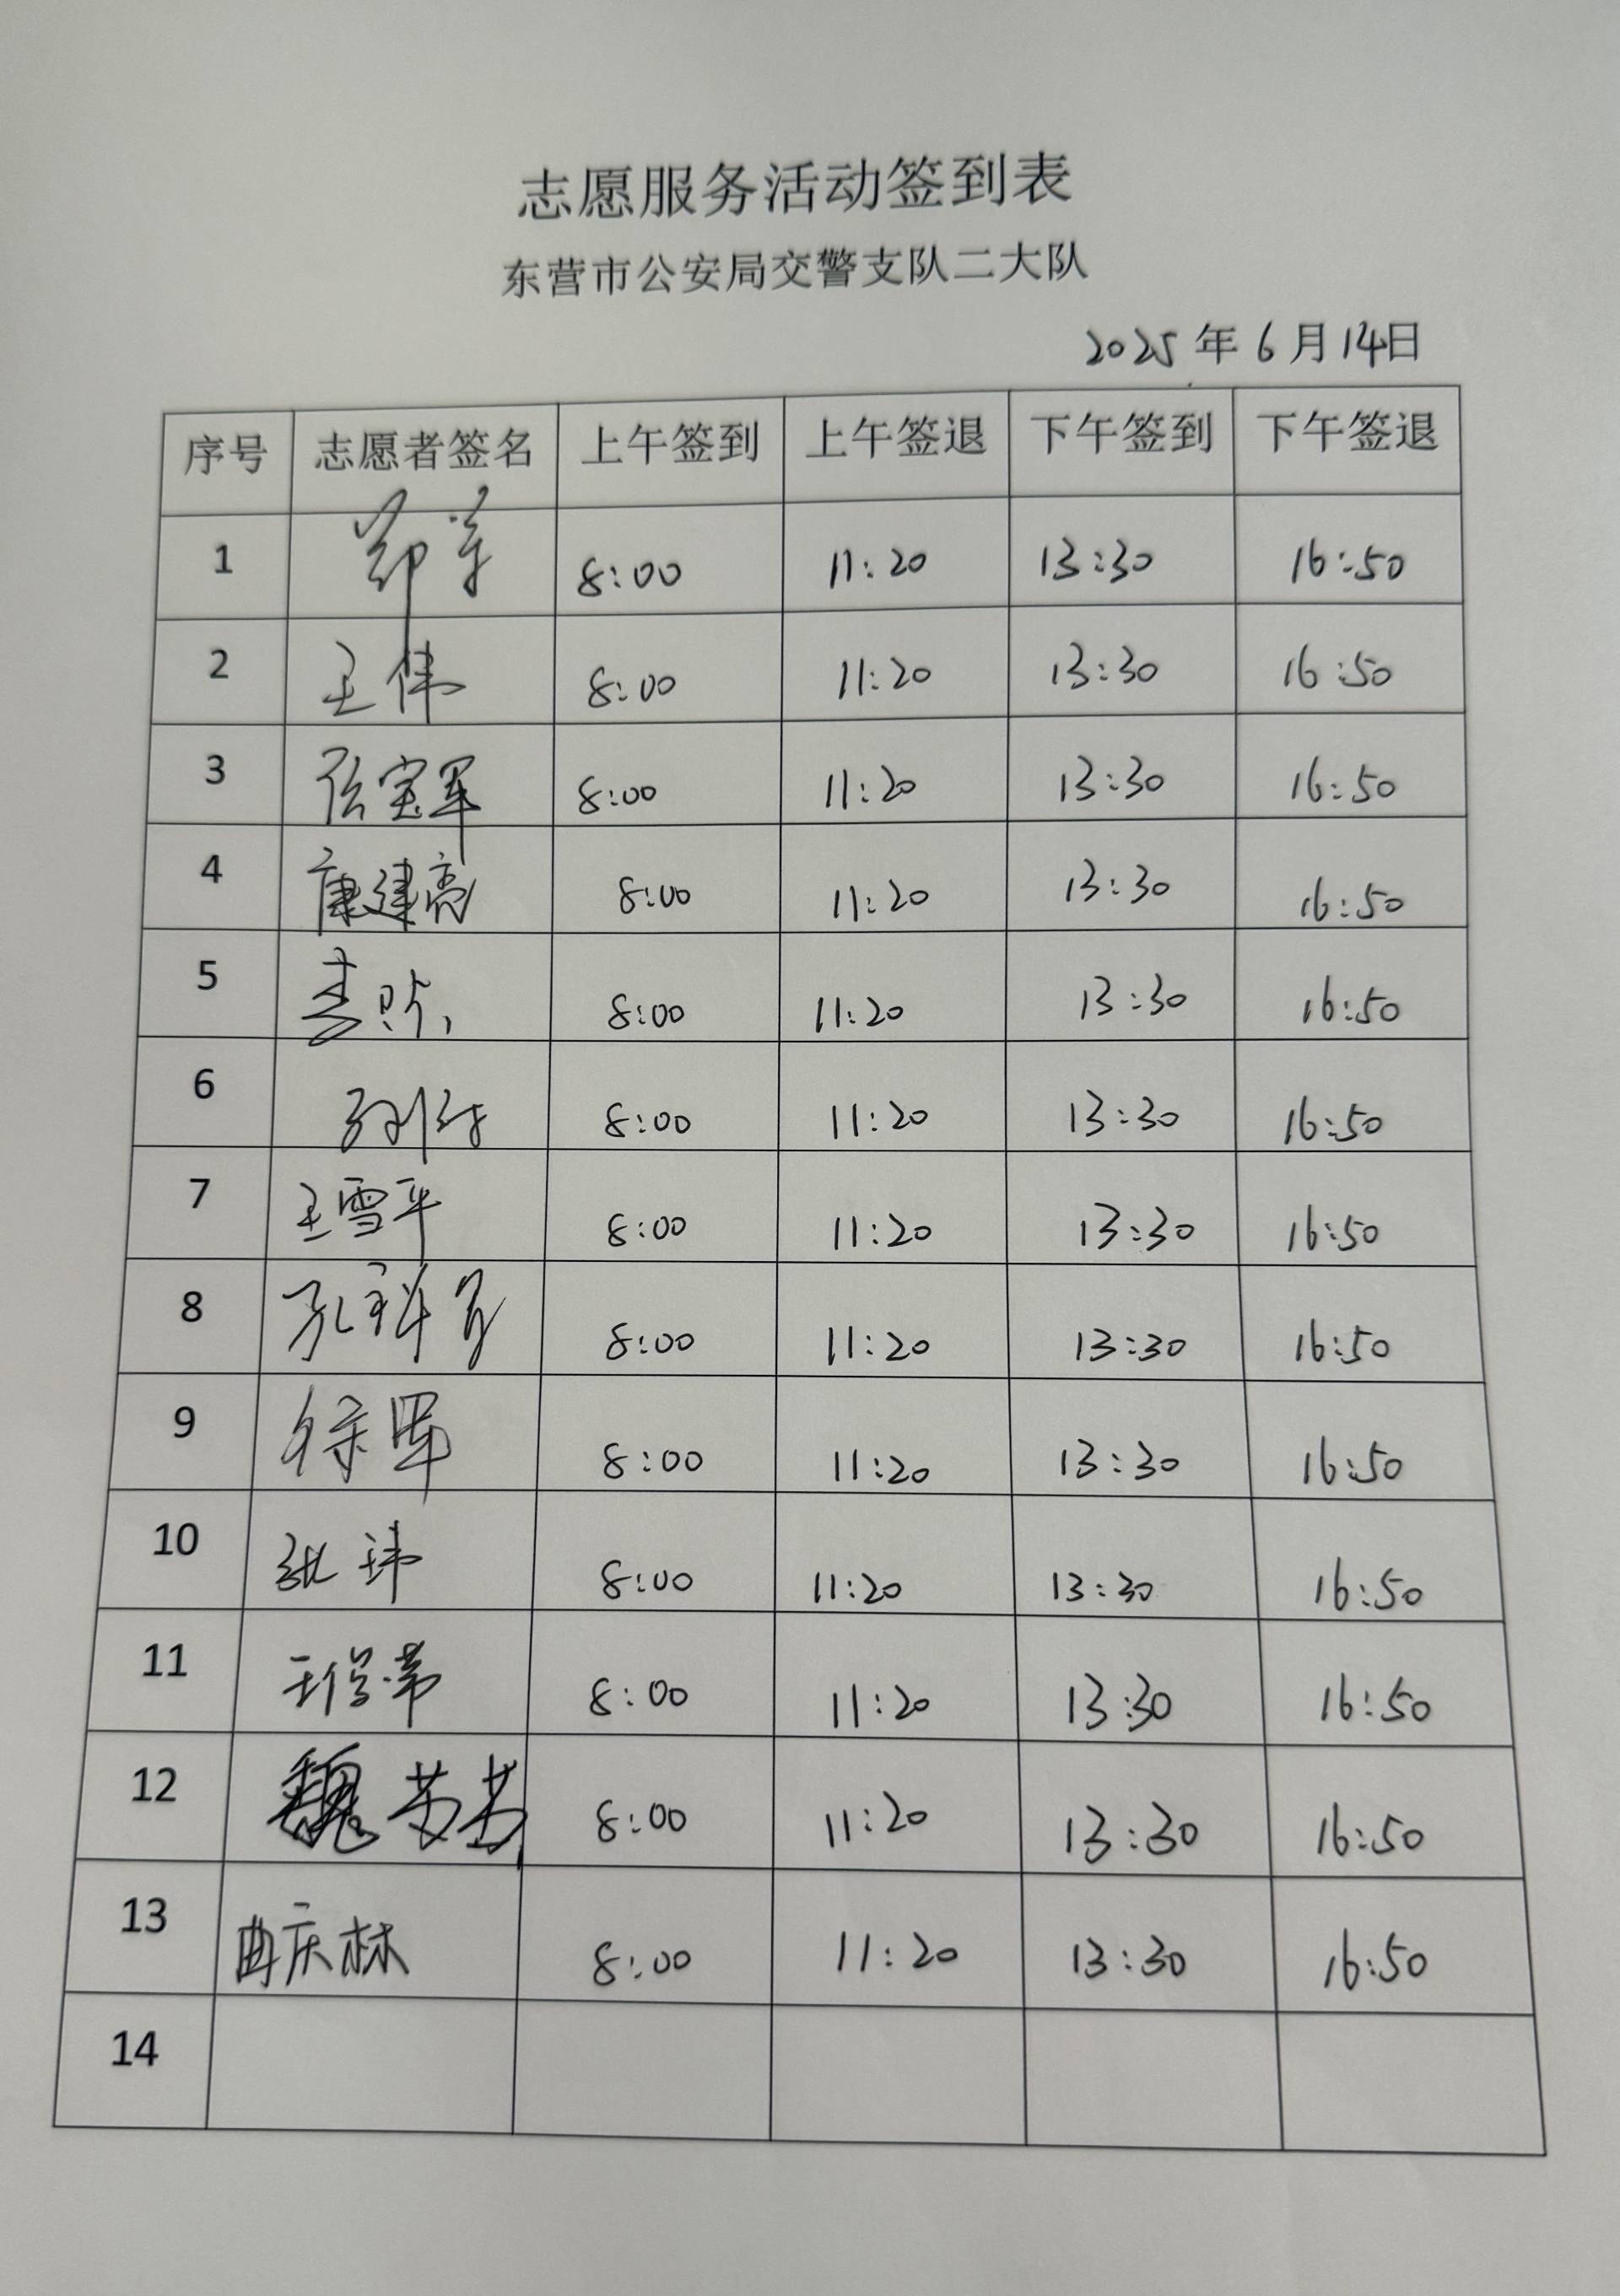 志愿服务活动签到表
东营市公安局交警支队二大队
2025年6月14日
序号 志愿者签名 上午签到 上午签退 下午签到 下午签退
1 8:00 11:20 13:30 16:50
2 王伟 8:00 11:20 13:30 16:50
3 张宝军 8:00 11:20 13:30 16:50
4 康建亮 8:00 11:20 13:30 16:50
5 8:00 11:20 13:30 16:50
6 8:00 11:20 13:30 16:50
7 王雪平 8:00 11:20 13:30 16:50
8 8:00 11:20 13:30 16:50
9 徐军 8:00 11:20 13:30 16:50
10 张玮 8:00 11:20 13:30 16:50
11 8:00 11:20 13:30 16:50
12 魏 8:00 11:20 13:30 16:50
13 曲庆林 8:00 11:20 13:30 16:50
14